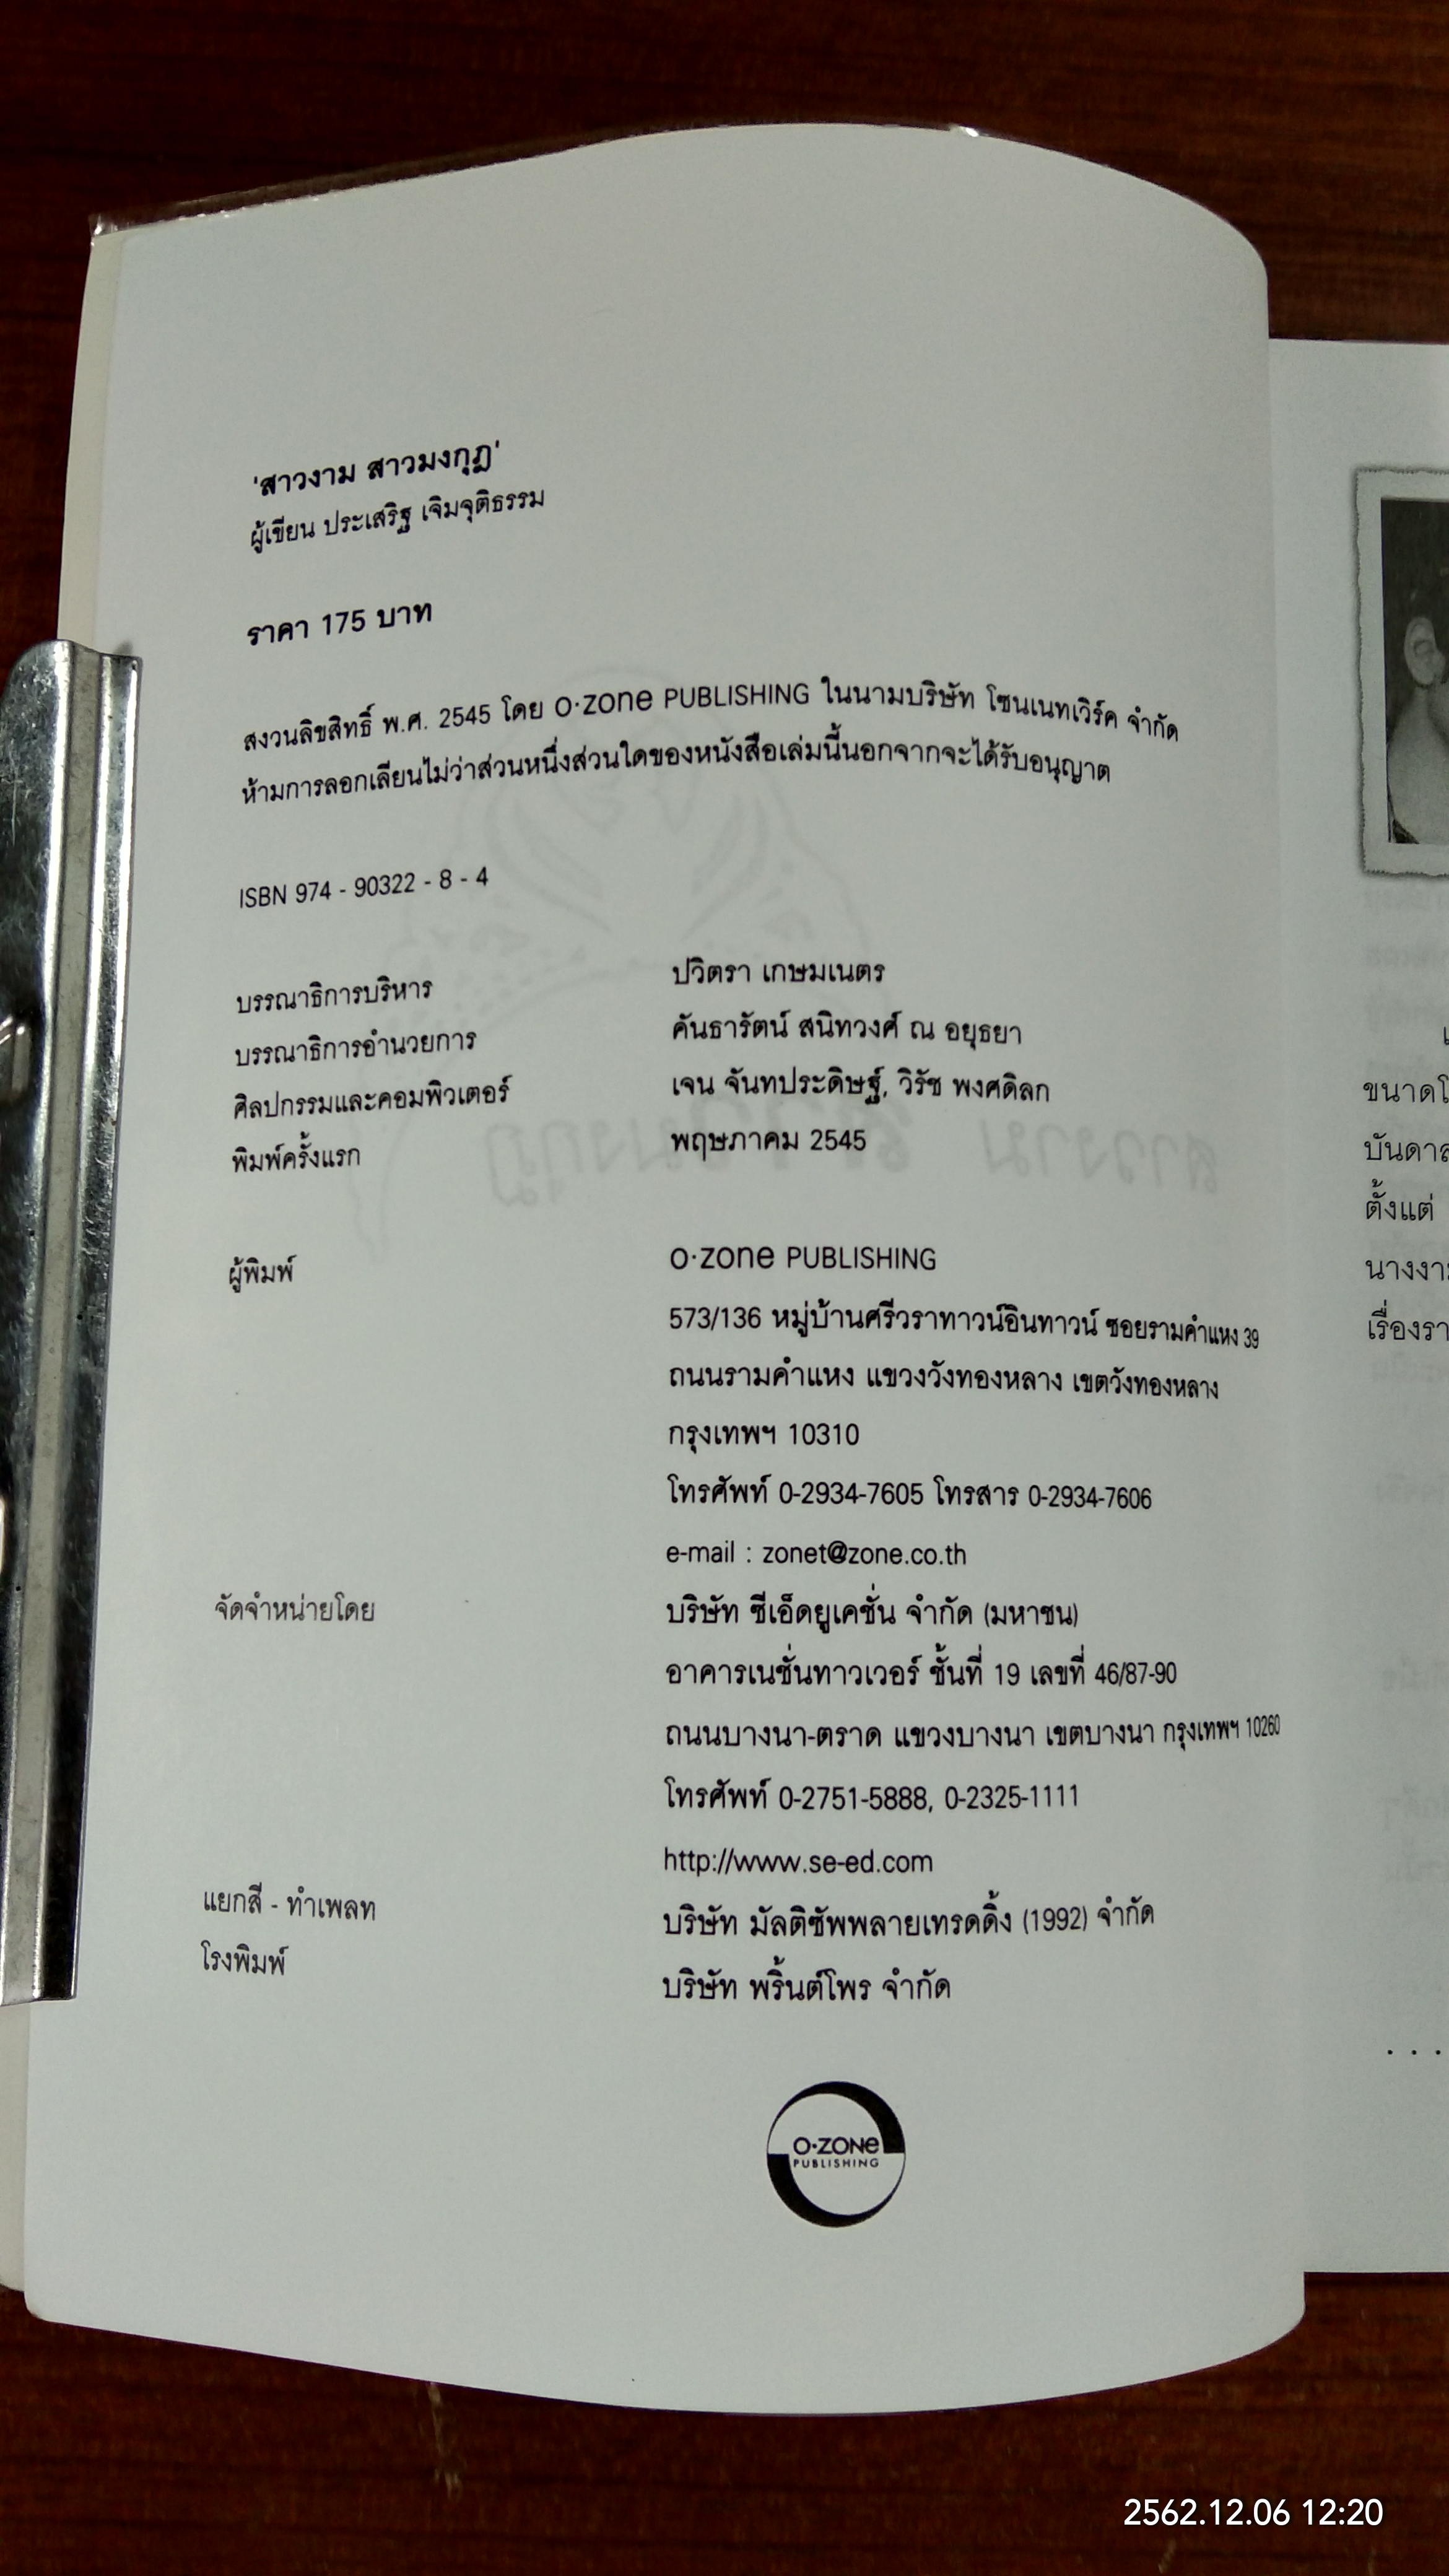 'สาวงาม สาวมงกุฎ'
ผู้เขียน ประเสริฐ เจิมจุติธรรม
ราคา 175 บาท
สงวนลิขสิทธิ์ พ.ศ. 2545 โดย o·zone PUBLISHING ในนามบริษัท โซนเนทเวิร์ค จำกัด
ห้ามการลอกเลียนไม่ว่าส่วนหนึ่งส่วนใดของหนังสือเล่มนี้นอกจากจะได้รับอนุญาต
ISBN 974 - 90322 - 8 - 4
บรรณาธิการบริหาร ปวิตรา เกษมเนตร
บรรณาธิการอำนวยการ คันธารัตน์ สนิทวงศ์ ณ อยุธยา
ศิลปกรรมและคอมพิวเตอร์ เจน จันทประดิษฐ์, วิรัช พงศดิลก
พิมพ์ครั้งแรก พฤษภาคม 2545
ผู้พิมพ์ o·zone PUBLISHING
573/136 หมู่บ้านศรีวราทาวน์อินทาวน์ ซอยรามคำแหง 39
ถนนรามคำแหง แขวงวังทองหลาง เขตวังทองหลาง
กรุงเทพฯ 10310
โทรศัพท์ 0-2934-7605 โทรสาร 0-2934-7606
e-mail : zonet@zone.co.th
จัดจำหน่ายโดย บริษัท ซีเอ็ดยูเคชั่น จำกัด (มหาชน)
อาคารเนชั่นทาวเวอร์ ชั้นที่ 19 เลขที่ 46/87-90
ถนนบางนา-ตราด แขวงบางนา เขตบางนา กรุงเทพฯ 10260
โทรศัพท์ 0-2751-5888, 0-2325-1111
http://www.se-ed.com
แยกสี - ทำเพลท บริษัท มัลติซัพพลายเทรดดิ้ง (1992) จำกัด
โรงพิมพ์ บริษัท พริ้นต์โพร จำกัด
O·ZONe
PUBLISHING
ขนาดโ
บันดาล
ตั้งแต่
นางงา
เรื่องรา
. . .
2562.12.06 12:20